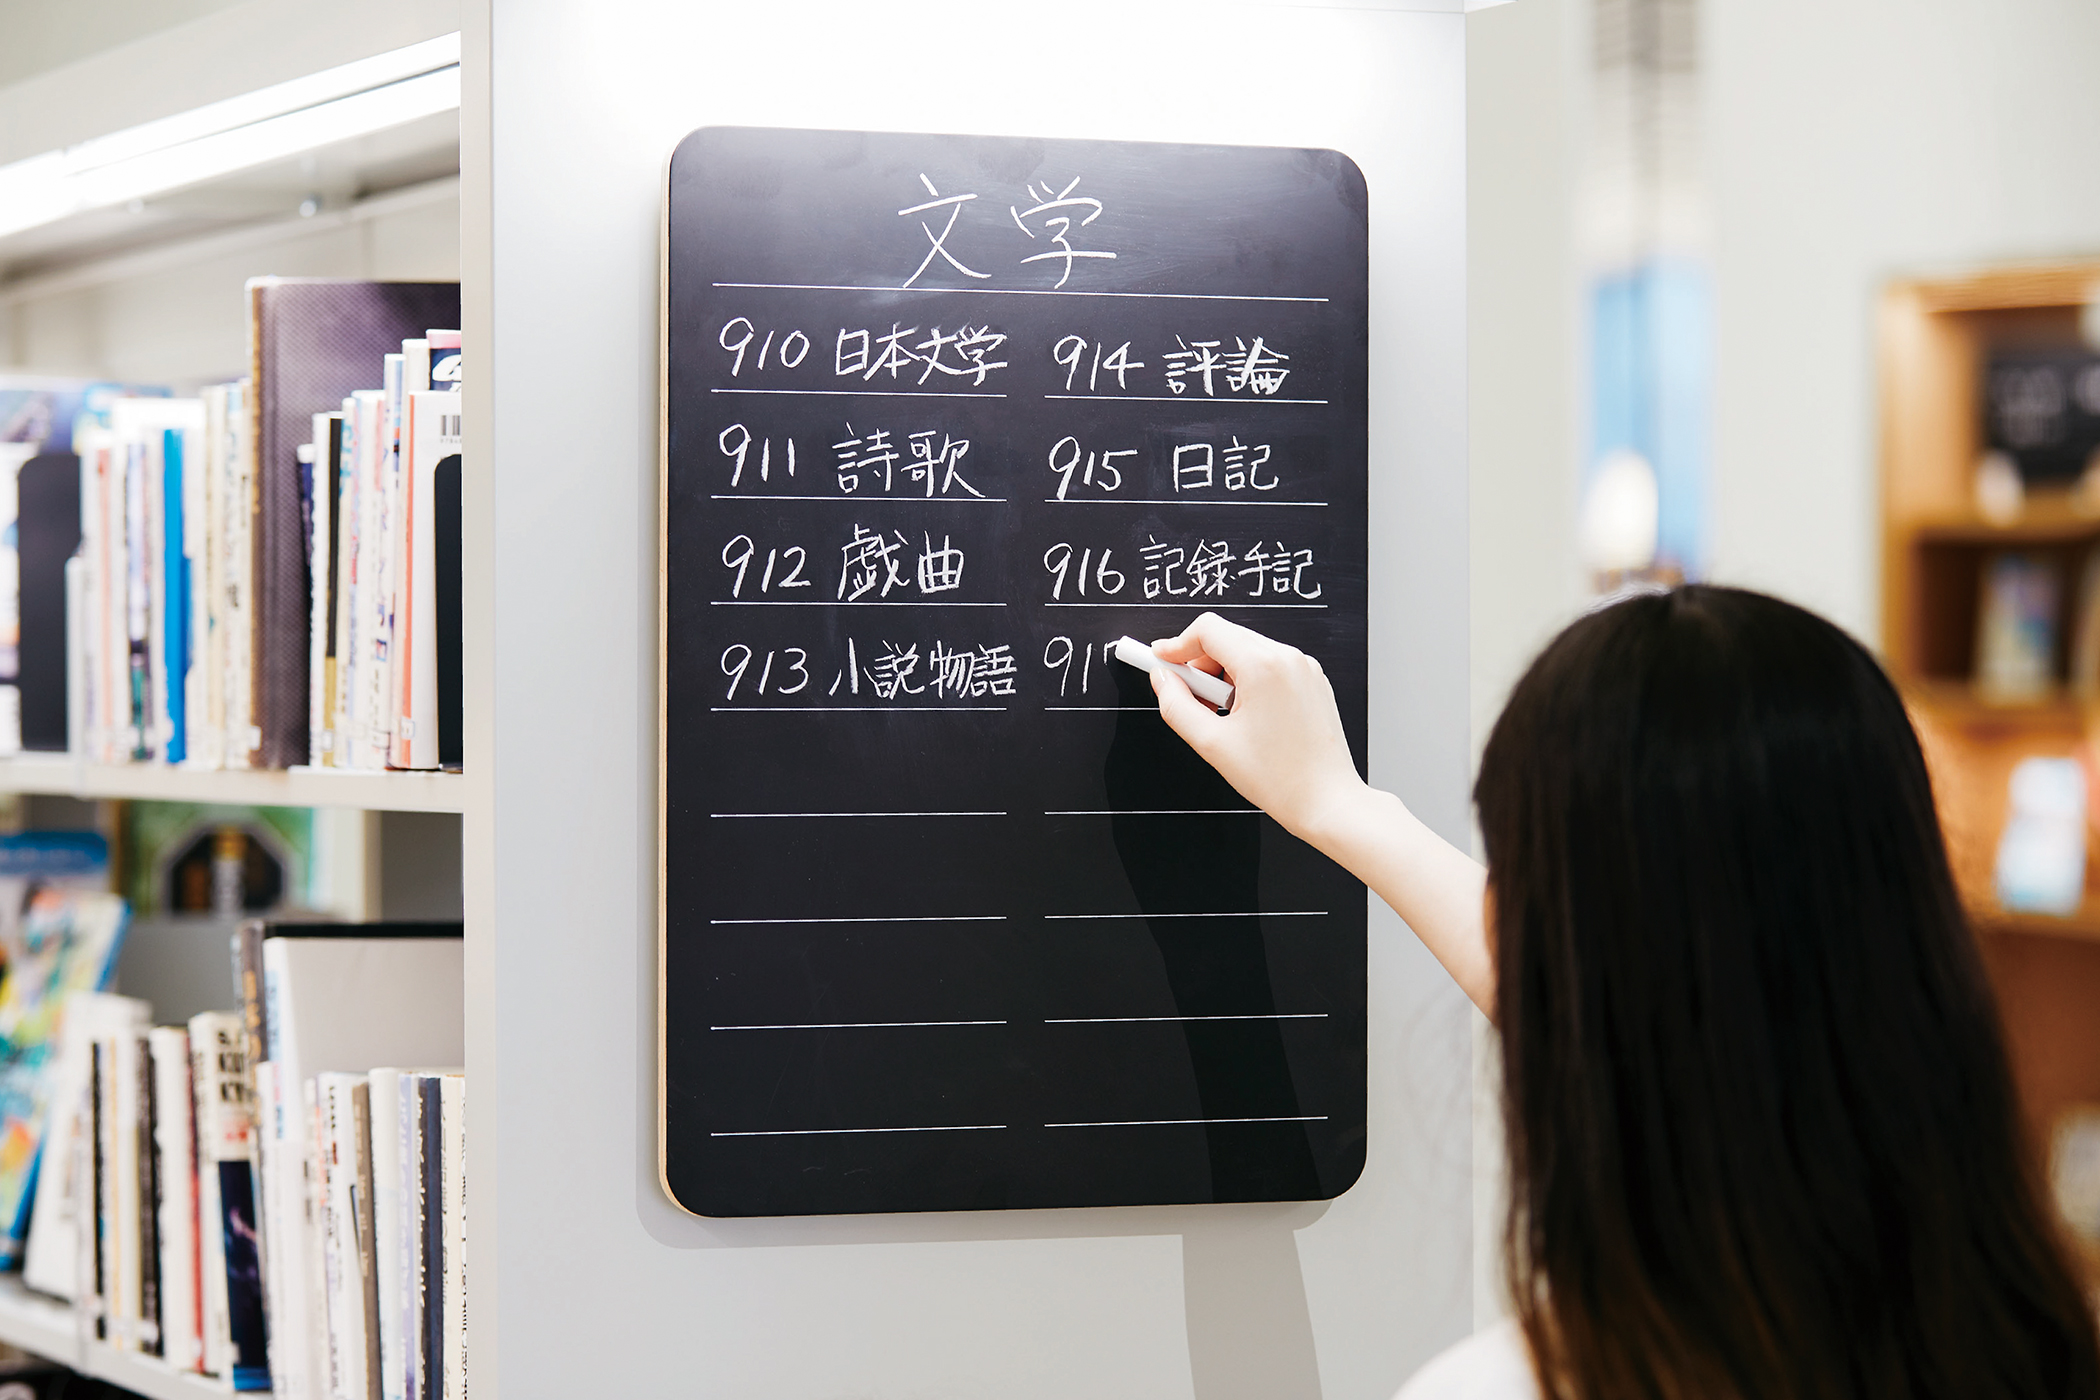 文学
910 日本文学
911 詩歌
912 戯曲
913 小説物語
914 評論
915 日記
916 記録手記
917